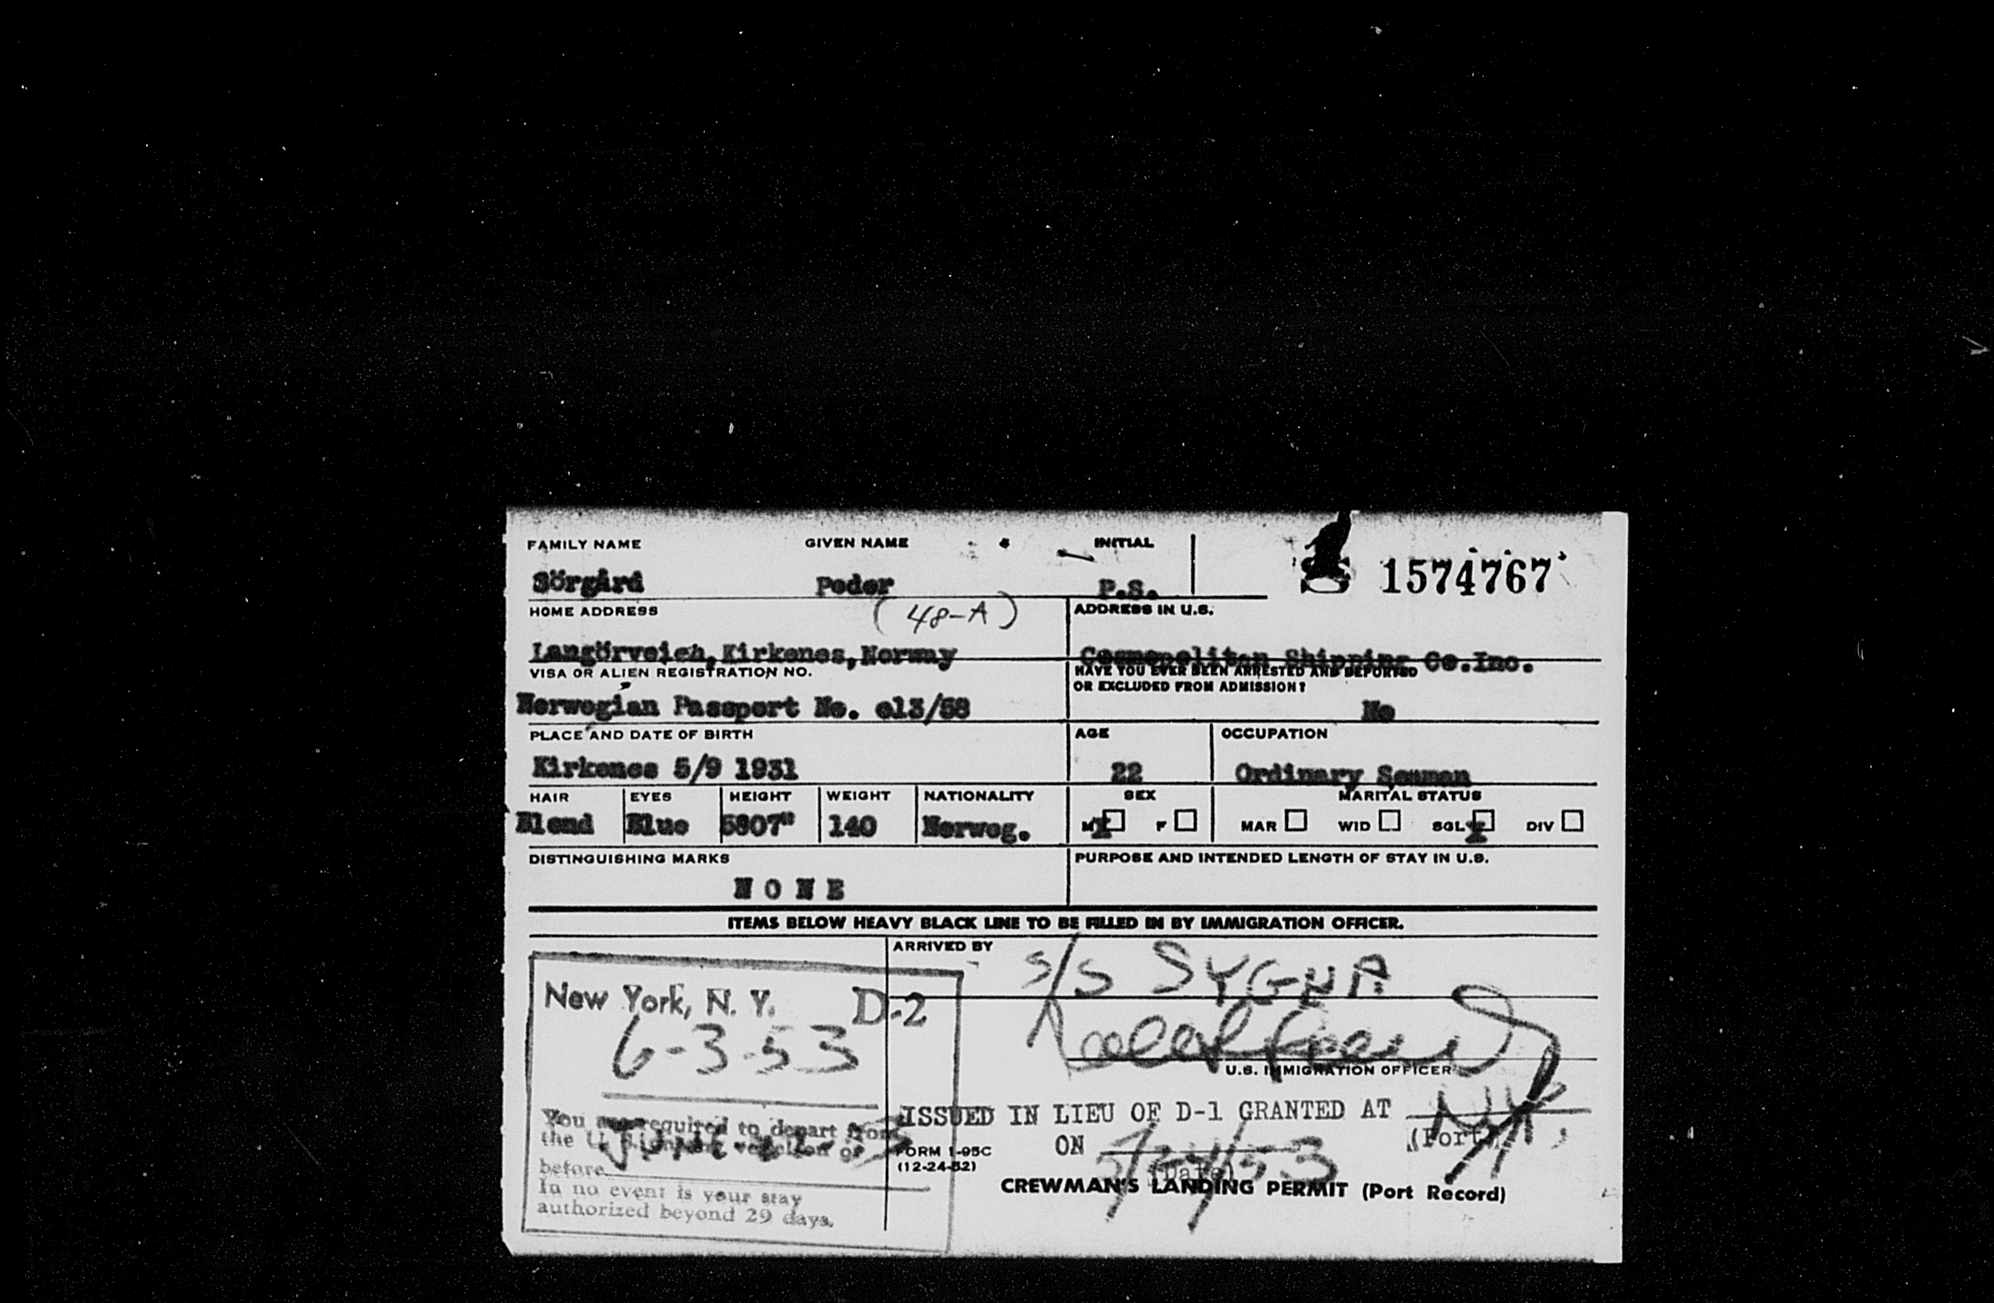 FAMILY NAME GIVEN NAME INITIAL
Sörgård Peder P.S. S 1574767
HOME ADDRESS (48-A) ADDRESS IN U.S.
Langörveien, Kirkenes, Norway Cosmopolitan Shipping Co.Inc.
VISA OR ALIEN REGISTRATION NO. HAVE YOU EVER BEEN ARRESTED AND DEPORTED
OR EXCLUDED FROM ADMISSION?
Norwegian Passport No. e13/58 No
PLACE AND DATE OF BIRTH AGE OCCUPATION
Kirkenes 5/9 1931 22 Ordinary Seaman
HAIR EYES HEIGHT WEIGHT NATIONALITY SEX MARITAL STATUS
Blond Blue 5807" 140 Norweg. M X F MAR WID SGL X DIV
DISTINGUISHING MARKS PURPOSE AND INTENDED LENGTH OF STAY IN U.S.
NONE
ITEMS BELOW HEAVY BLACK LINE TO BE FILLED IN BY IMMIGRATION OFFICER.
ARRIVED BY S/S SYGNA
New York, N. Y. D-2
6-3-53
U.S. IMMIGRATION OFFICER
You are required to depart from
the U. S. on your vessel on or
before
In no event is your stay
authorized beyond 29 days.
ISSUED IN LIEU OF D-1 GRANTED AT N.Y.
(Port)
ON 5/24/53
(Date)
FORM I-95C
(12-24-52)
CREWMAN'S LANDING PERMIT (Port Record)